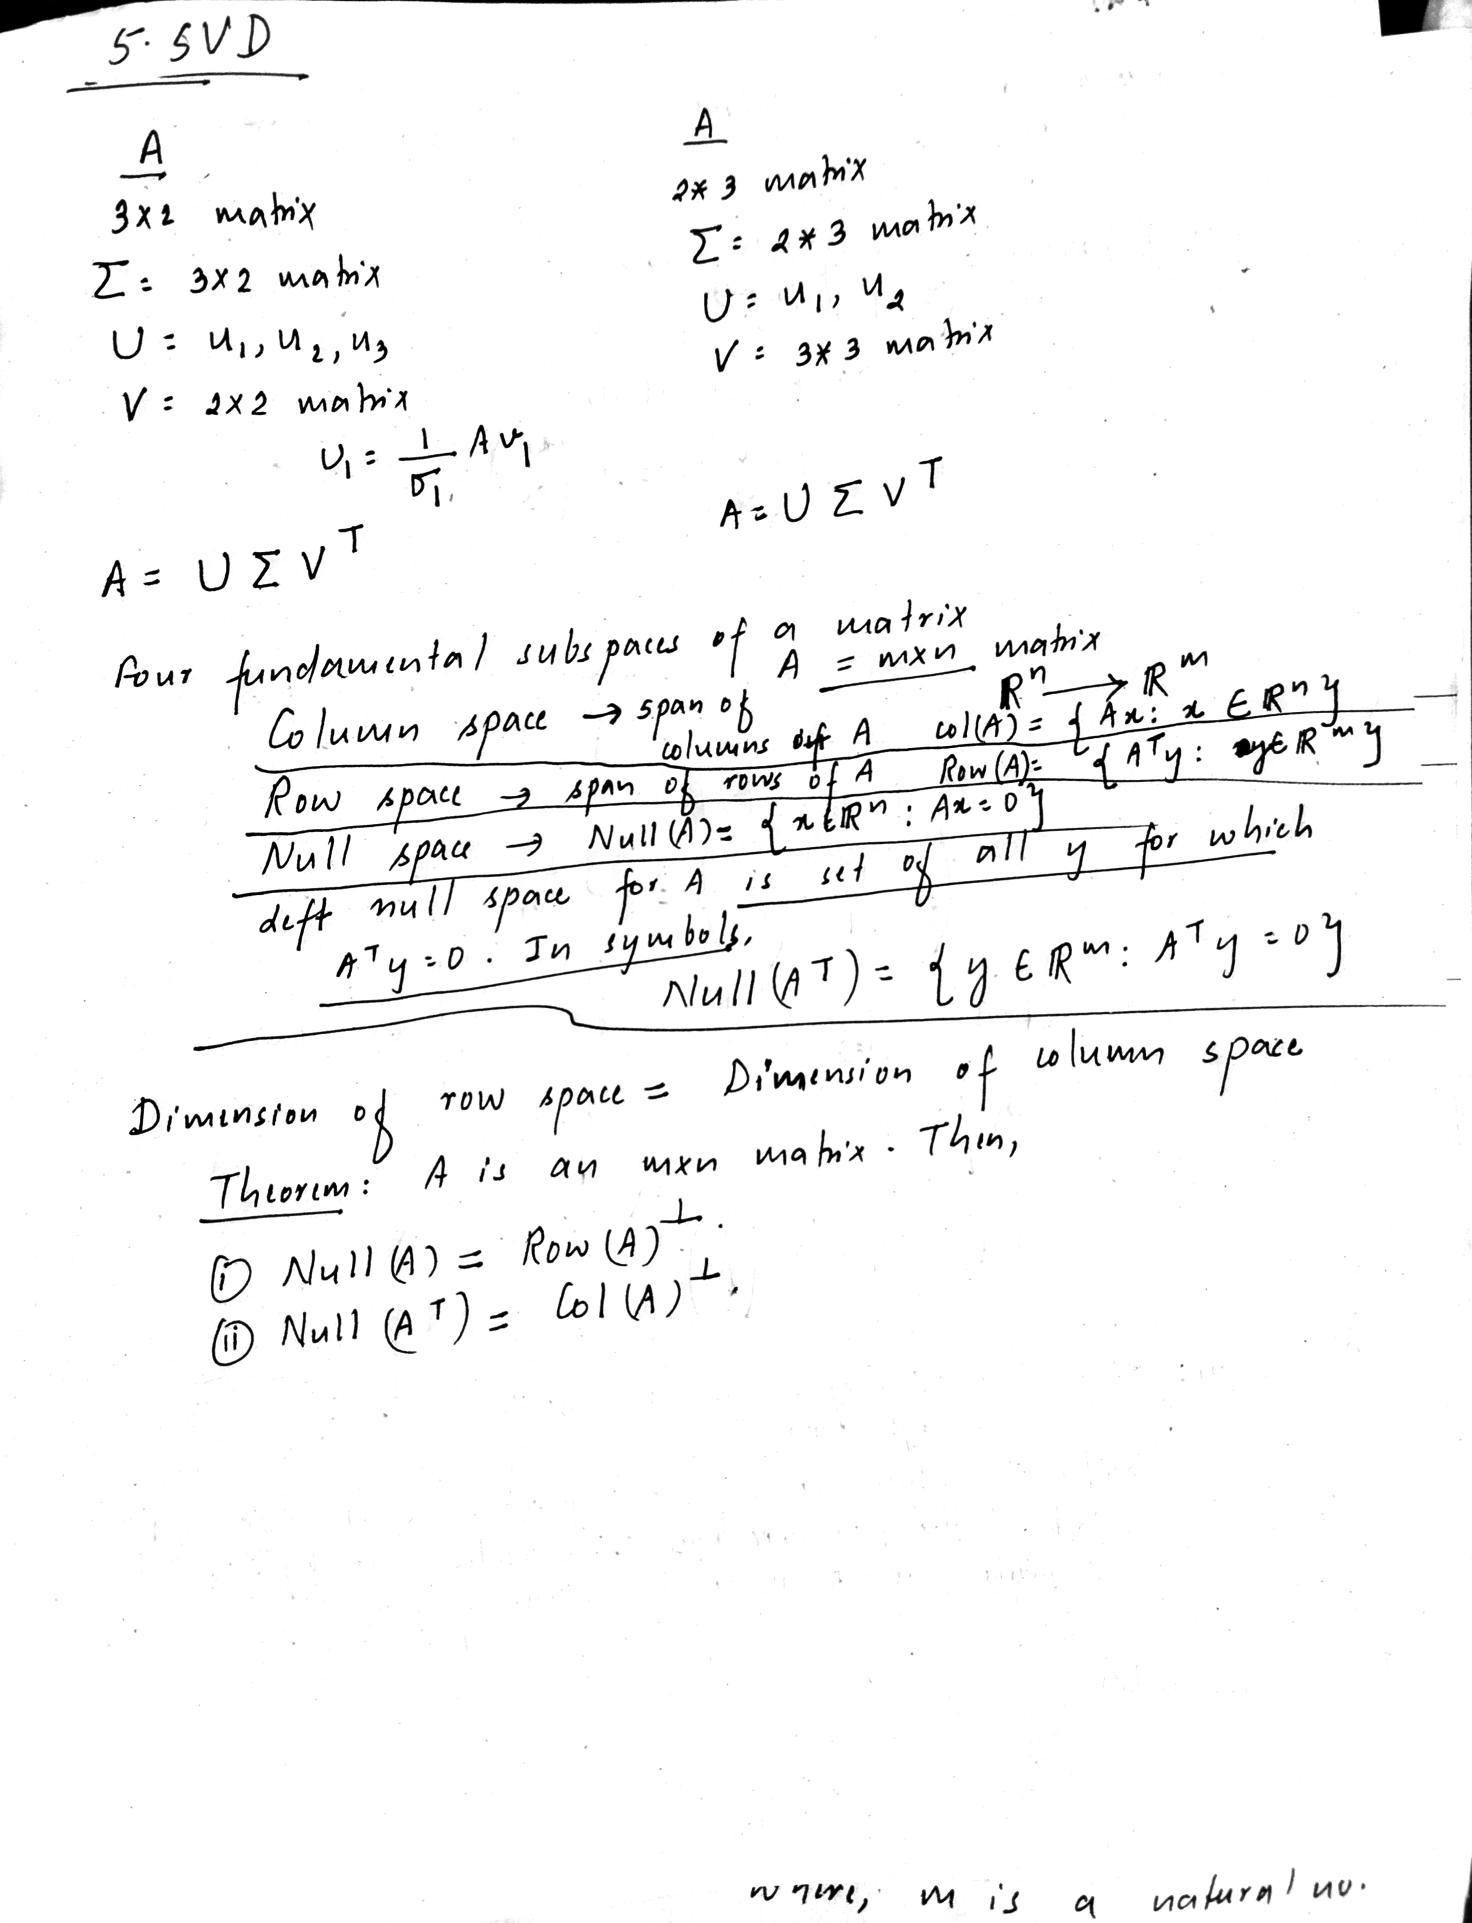 5. SVD
A
3×2 matrix
Σ = 3×2 matrix
U = u₁, u₂, u₃
V = 2×2 matrix
u₁ = 1/σ₁ A v₁
A = U Σ Vᵀ
A
2*3 matrix
Σ = 2*3 matrix
U = u₁, u₂
V = 3*3 matrix
A = U Σ Vᵀ
Four fundamental subspaces of a matrix
A = m×n matrix
ℝⁿ → ℝᵐ
Column space → span of columns of A col(A) = { Ax : x ∈ ℝⁿ }
Row space → span of rows of A Row(A) = { Aᵀy : y ∈ ℝᵐ }
Null space → Null(A) = { x ∈ ℝⁿ : Ax = 0 }
Left null space for A is set of all y for which
Aᵀy = 0. In symbols,
Null(Aᵀ) = { y ∈ ℝᵐ : Aᵀy = 0 }
Dimension of row space = Dimension of column space
Theorem: A is an m×n matrix. Then,
(i) Null(A) = Row(A)^⊥.
(ii) Null(Aᵀ) = Col(A)^⊥.
where, m is a natural no.